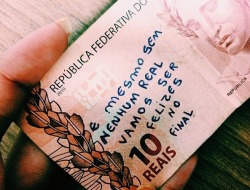 REPÚBLICA FEDERATIVA DO
E MESMO SEM
NENHUM REAL
VAMOS SER
FELIZES
NO
FINAL
10
REAIS